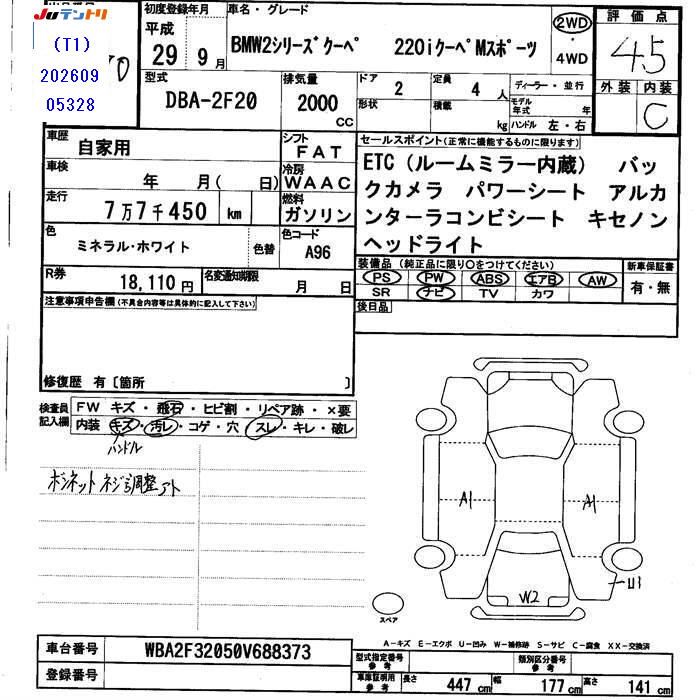 JUテントリ
(T1)
202609
05328
初度登録年月
平成
29年9月
車名・グレード
BMW2シリーズクーペ 220iクーペMスポーツ
2WD
・
4WD
評価点
4.5
外装 内装
C
型式
DBA-2F20
排気量
2000
CC
ドア
2
形状
定員
4人
積載
kg
ディーラー・並行
モデル年式 年
ハンドル 左・右
車歴
自家用
シフト
FAT
車検
年 月( 日)
冷房
WAAC
走行
7万7千450 km
燃料
ガソリン
色
ミネラル・ホワイト
色替
色コード
A96
R券
18,110円
名変通知期限
月 日
セールスポイント(正常に機能するものに限ります)
ETC(ルームミラー内蔵) バッ
クカメラ パワーシート アルカ
ンターラコンビシート キセノン
ヘッドライト
装備品(純正品に限り○をつけてください)
新車保証書
PS PW ABS エアB AW
SR ナビ TV カワ
有・無
後日品
注意事項申告欄(不具合内容等は具体的に記入して下さい)
修復歴 有〔箇所 〕
検査員
記入欄
FW キズ・飛石・ヒビ割・リペア跡・×要
内装 キズ・汚レ・コゲ・穴・スレ・キレ・破レ
ハンドル
ボンネット ネジ調整アト
A1
A1
U1
W2
スペア
A-キズ E-エクボ U-凹み W-補修跡 S-サビ C-腐食 XX-交換済
車台番号
WBA2F32050V688373
登録番号
型式指定番号
参考
類別区分番号
参考
車庫証明用
参考
長さ 447cm 幅 177cm 高さ 141cm